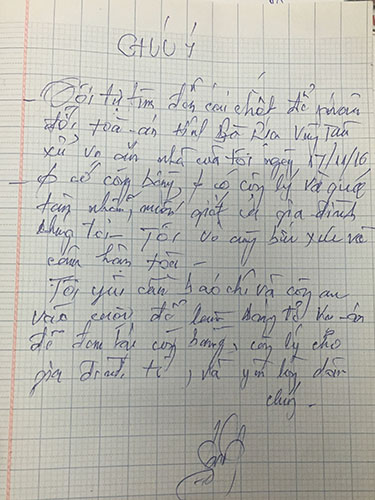 CHÚ Ý
- Tôi tự tìm đến cái chết để phản
đối toà án tỉnh Bà Rịa Vũng Tàu
xử vụ án nhà của tôi ngày 17/11/16
- ko có công bằng, ko có công lý và quá
tàn nhẫn, muốn giết cả gia đình
chúng tôi - Tôi vô cùng bức xúc và
căm hờn tòa -
Tôi yêu cầu báo chí và công an
vào cuộc để làm sáng tỏ vụ án
để đem lại công bằng, công lý cho
gia đình tôi, và yên lòng dân
chúng -